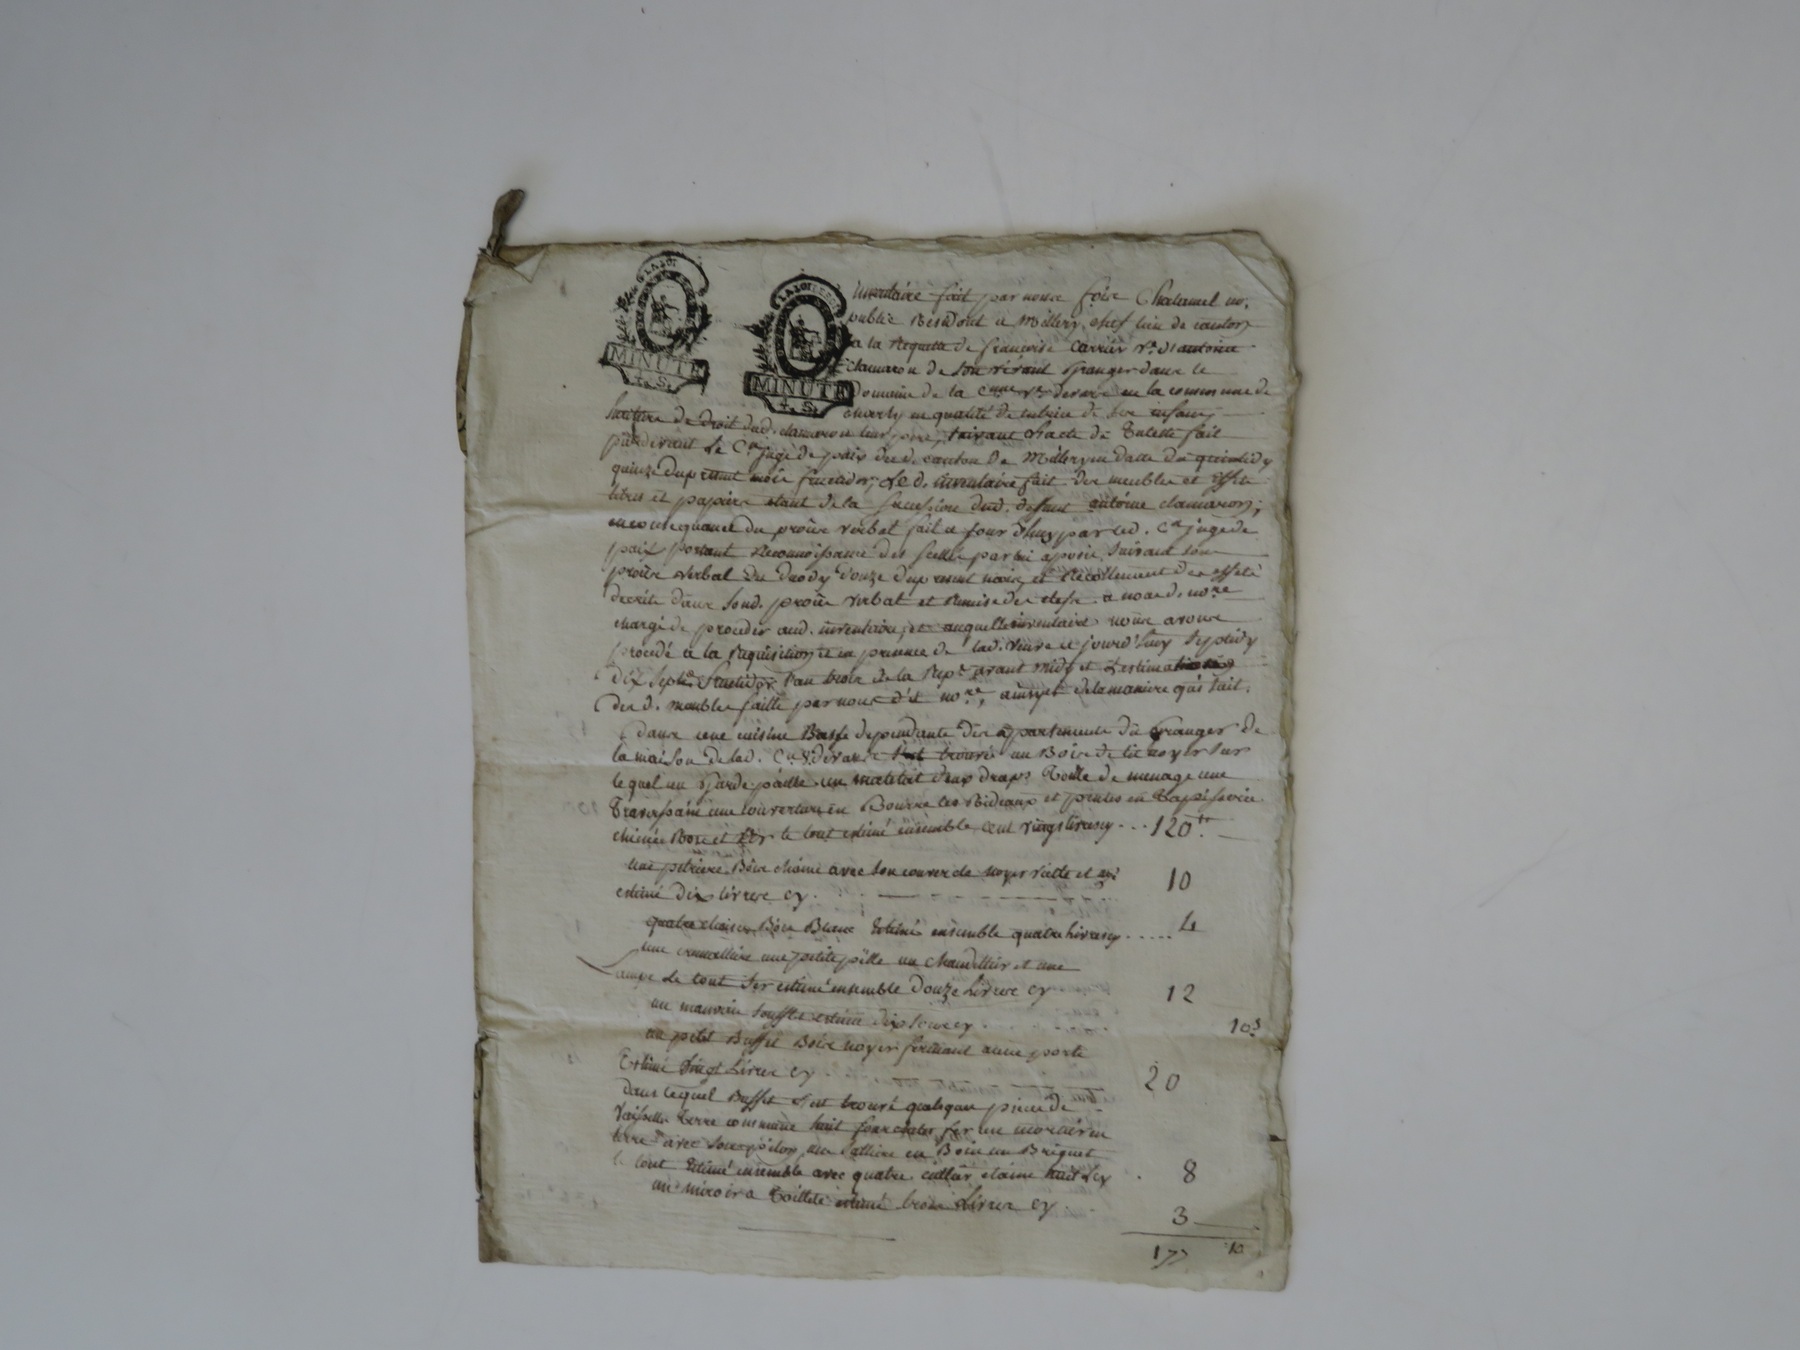 LA LOI
MINUTE
4. S.
LA LOI
MINUTE
4. S.
Inventaire fait par nous foix Chalamel no.re
public Residant a Millery chef lieu de canton
a la Requette de françoise Carrier v.e d'antoine
clamaron de son vivant Granger dans le
Domaine de la c.nne v.e en la commune de
charly en qualité de tutrice de ses enfans
de droit dud. clamaron leur pere, suivant l'acte de tutelle fait
pardevant le C.en juge de paix dud. canton de Millery en datte du quintidy
quinze du present mois fructidor, Led. inventaire fait des meubles et effets
titres et papiers etant de la succession dud. deffunt antoine clamaron;
en consequence du procès verbal fait ce jourd'huy par led. C.en juge de
paix portant Reconnoissance des scellés par lui apposés suivant son
procès verbal du duody douze du present mois, et Recollement des effets
decrits dans sond. procès verbal et Remise des clefs a nousd. no.re
chargé de proceder aud. inventaire, et auquel inventaire nous avons
procédé a la Requisition et en presence de lad. veuve ce jourd'huy septidy
dix sept fructidor l'an trois de la Rep.e avant midy et l'estimation
des d. meubles faitte par nous d.t no.re, ainsy et de la maniere qui suit.
Dans une cuisine Basse dependante des appartements du Granger de
la maison de lad. C.ne v.e s'est trouvé un Bois de lit noyer sur
lequel un Garde paille un matelat deux draps Toille de menage une
Traversaine une couverture en Bourre les Rideaux et pentes en Tapisserie
le tout estimé ensemble cent vingt livres cy... 120.tt
une petriere Bois chaine avec son couvercle noyer vielle et usé
estimé dix livres cy. 10
quatre chaises Bois Blanc Estimés ensemble quatre livres cy ..... 4
une une petite pelle un chandellier et une
Lampe le tout fer estimé ensemble douze Livres cy 12
un mauvais soufflet estimé dix sous cy 10.s
un petit Buffet Bois noyer fermant a une porte
Estimé Vingt Livres cy 20
dans lequel Buffet s'est trouvé quelque piece de
Vaisselle terre commune huit fourchetes fer un mortier en
terre avec son pilon, une salliere en Bois un Briquet
le tout Estimé ensemble avec quatre cuilliers etaim huit L cy . 8
un miroir a Toillete estimé trois Livres cy 3
177 10